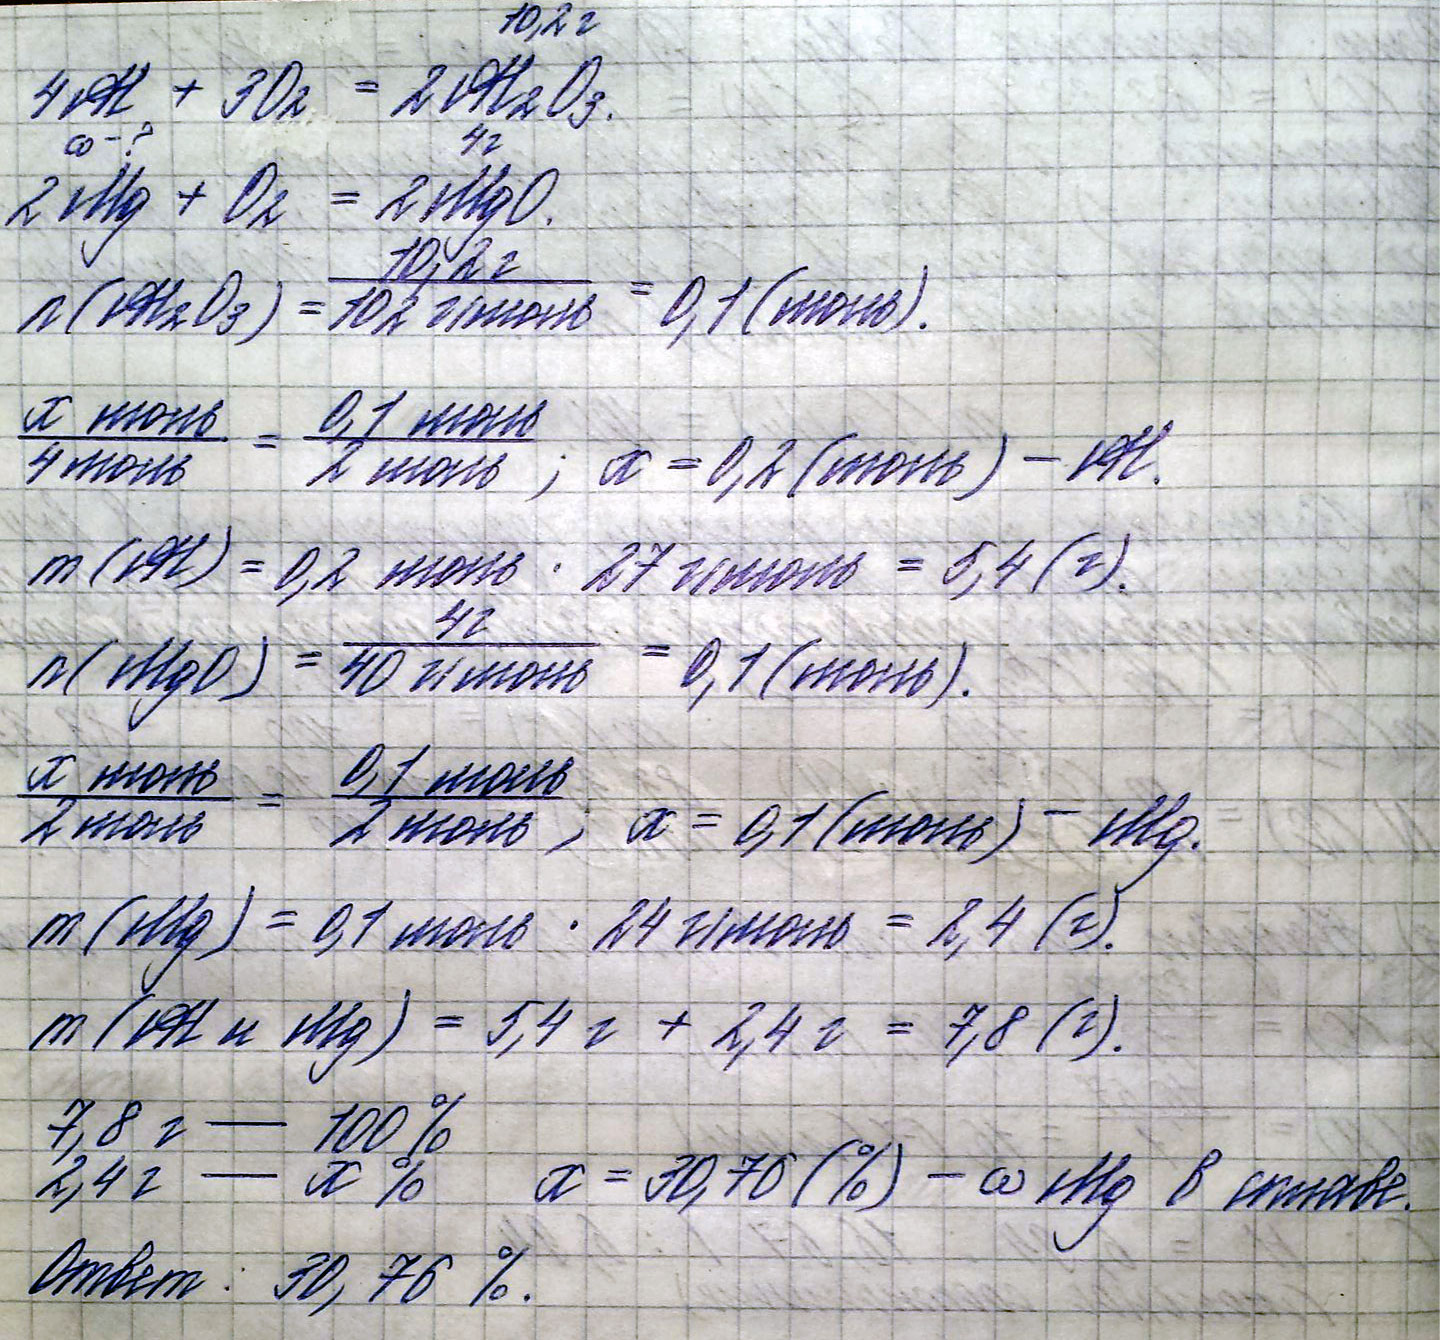 10,2 г
4Al + 3O₂ = 2Al₂O₃.
ω - ? 4г
2Mg + O₂ = 2MgO.
n(Al₂O₃) = 10,2 г / 102 г/моль = 0,1 (моль).
x моль / 4 моль = 0,1 моль / 2 моль ; x = 0,2 (моль) – Al.
m(Al) = 0,2 моль · 27 г/моль = 5,4 (г).
n(MgO) = 4г / 40 г/моль = 0,1 (моль).
x моль / 2 моль = 0,1 моль / 2 моль ; x = 0,1 (моль) – Mg.
m(Mg) = 0,1 моль · 24 г/моль = 2,4 (г).
m(Al и Mg) = 5,4 г + 2,4 г = 7,8 (г).
7,8 г — 100 %
2,4 г — x % x = 30,76 (%) – ω Mg в сплаве.
Ответ: 30,76 %.